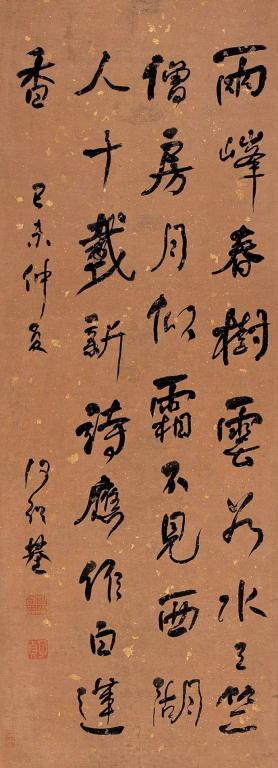 兩峰春樹雲若水三竺
僧房月似霜不見西湖
人千載新詩應作白蓮
香
己未仲夏
何紹基